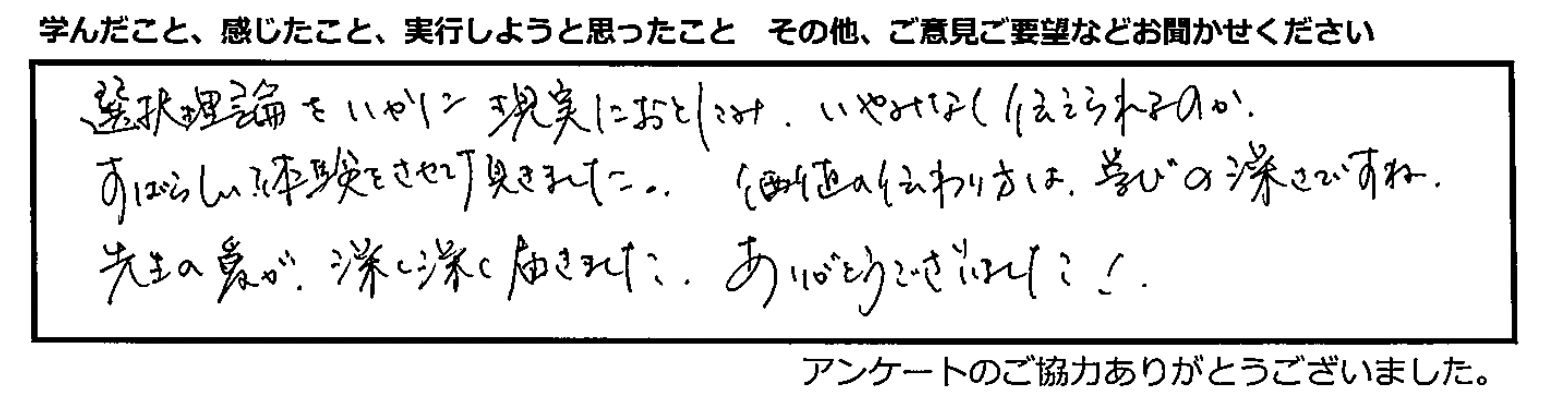 学んだこと、感じたこと、実行しようと思ったこと　その他、ご意見ご要望などお聞かせください
選択理論をいかに現実におとしこみ、いやみなく伝えられるのか、
すばらしい体験をさせて頂きました。価値の伝わり方は、学びの深さですね。
先生の愛が、深く深く届きました。ありがとうございました！
アンケートのご協力ありがとうございました。